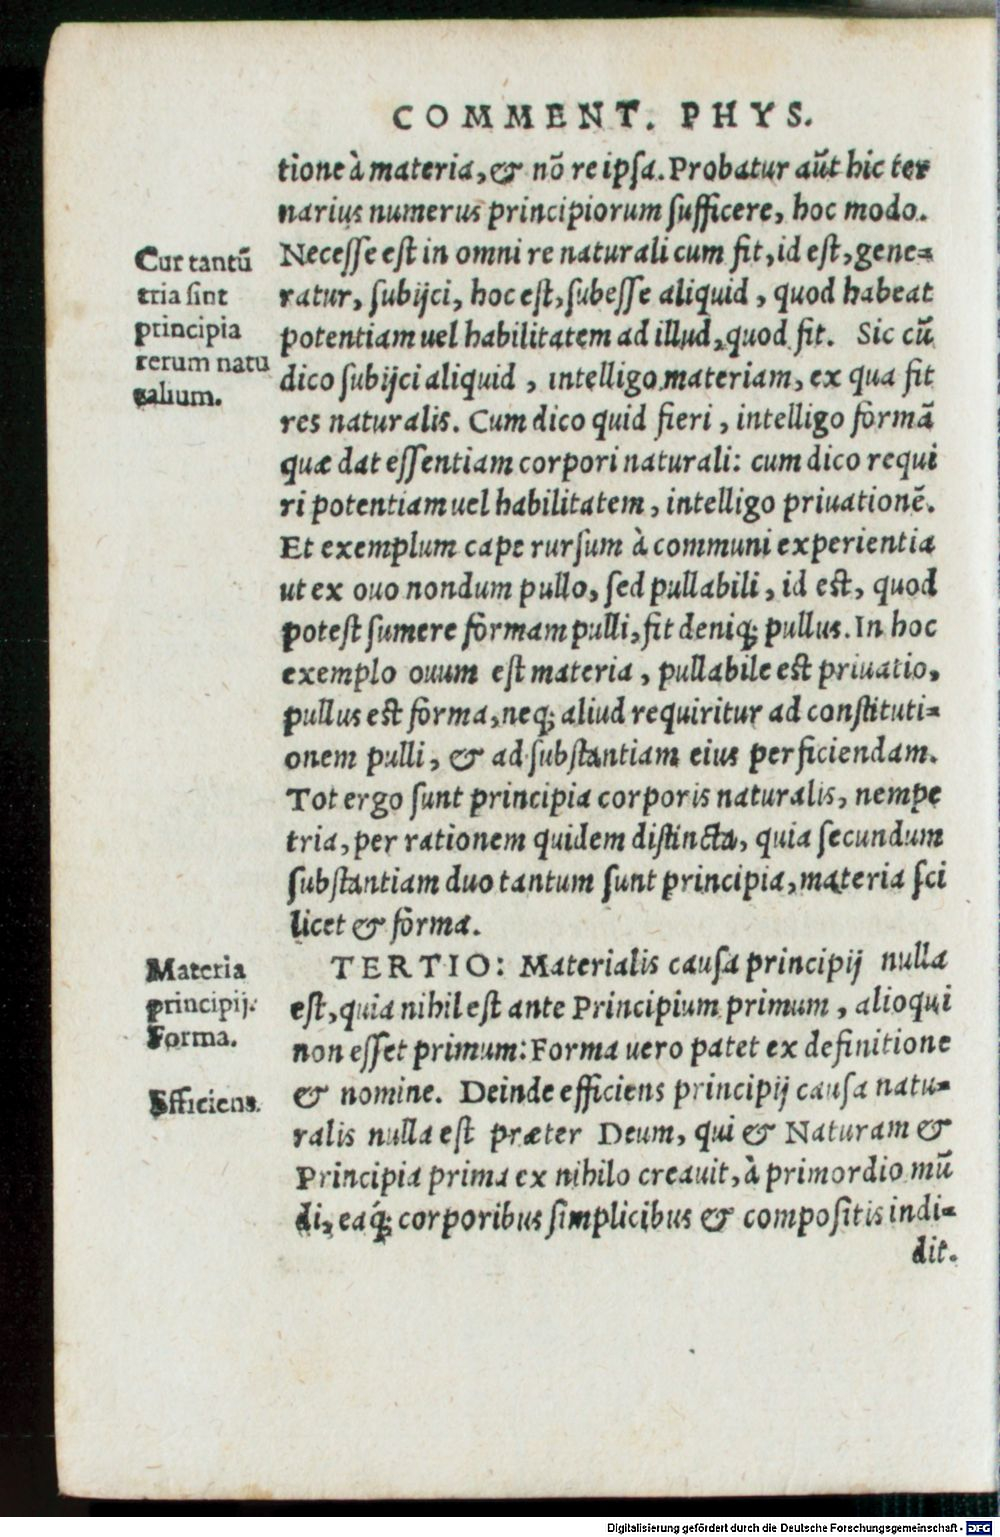 COMMENT. PHYS.
tione à materia, & nõ re ipſa. Probatur aũt hic ter
narius numerus principiorum ſufficere, hoc modo.
Cur tantũ
tria ſint
principia
rerum natu
ralium.
Neceſſe eſt in omni re naturali cum fit, id eſt, gene-
ratur, ſubijci, hoc eſt, ſubeſſe aliquid, quod habeat
potentiam uel habilitatem ad illud, quod fit. Sic cũ
dico ſubijci aliquid, intelligo materiam, ex qua fit
res naturalis. Cum dico quid fieri, intelligo formã
quæ dat eſſentiam corpori naturali: cum dico requi
ri potentiam uel habilitatem, intelligo priuationẽ.
Et exemplum cape rurſum à communi experientia
ut ex ouo nondum pullo, ſed pullabili, id eſt, quod
poteſt ſumere formam pulli, fit deniq; pullus. In hoc
exemplo ouum eſt materia, pullabile eſt priuatio,
pullus eſt forma, neq; aliud requiritur ad conſtituti-
onem pulli, & ad ſubſtantiam eius perficiendam.
Tot ergo ſunt principia corporis naturalis, nempe
tria, per rationem quidem diſtincta, quia ſecundum
ſubſtantiam duo tantum ſunt principia, materia ſci
licet & forma.
Materia
principij.
Forma.
Efficiens.
TERTIO: Materialis cauſa principij nulla
eſt, quia nihil eſt ante Principium primum, alioqui
non eſſet primum: Forma uero patet ex definitione
& nomine. Deinde efficiens principij cauſa natu-
ralis nulla eſt præter Deum, qui & Naturam &
Principia prima ex nihilo creauit, à primordio mũ
di, eaq́; corporibus ſimplicibus & compoſitis indi-
dit.
Digitalisierung gefördert durch die Deutsche Forschungsgemeinschaft - DFG